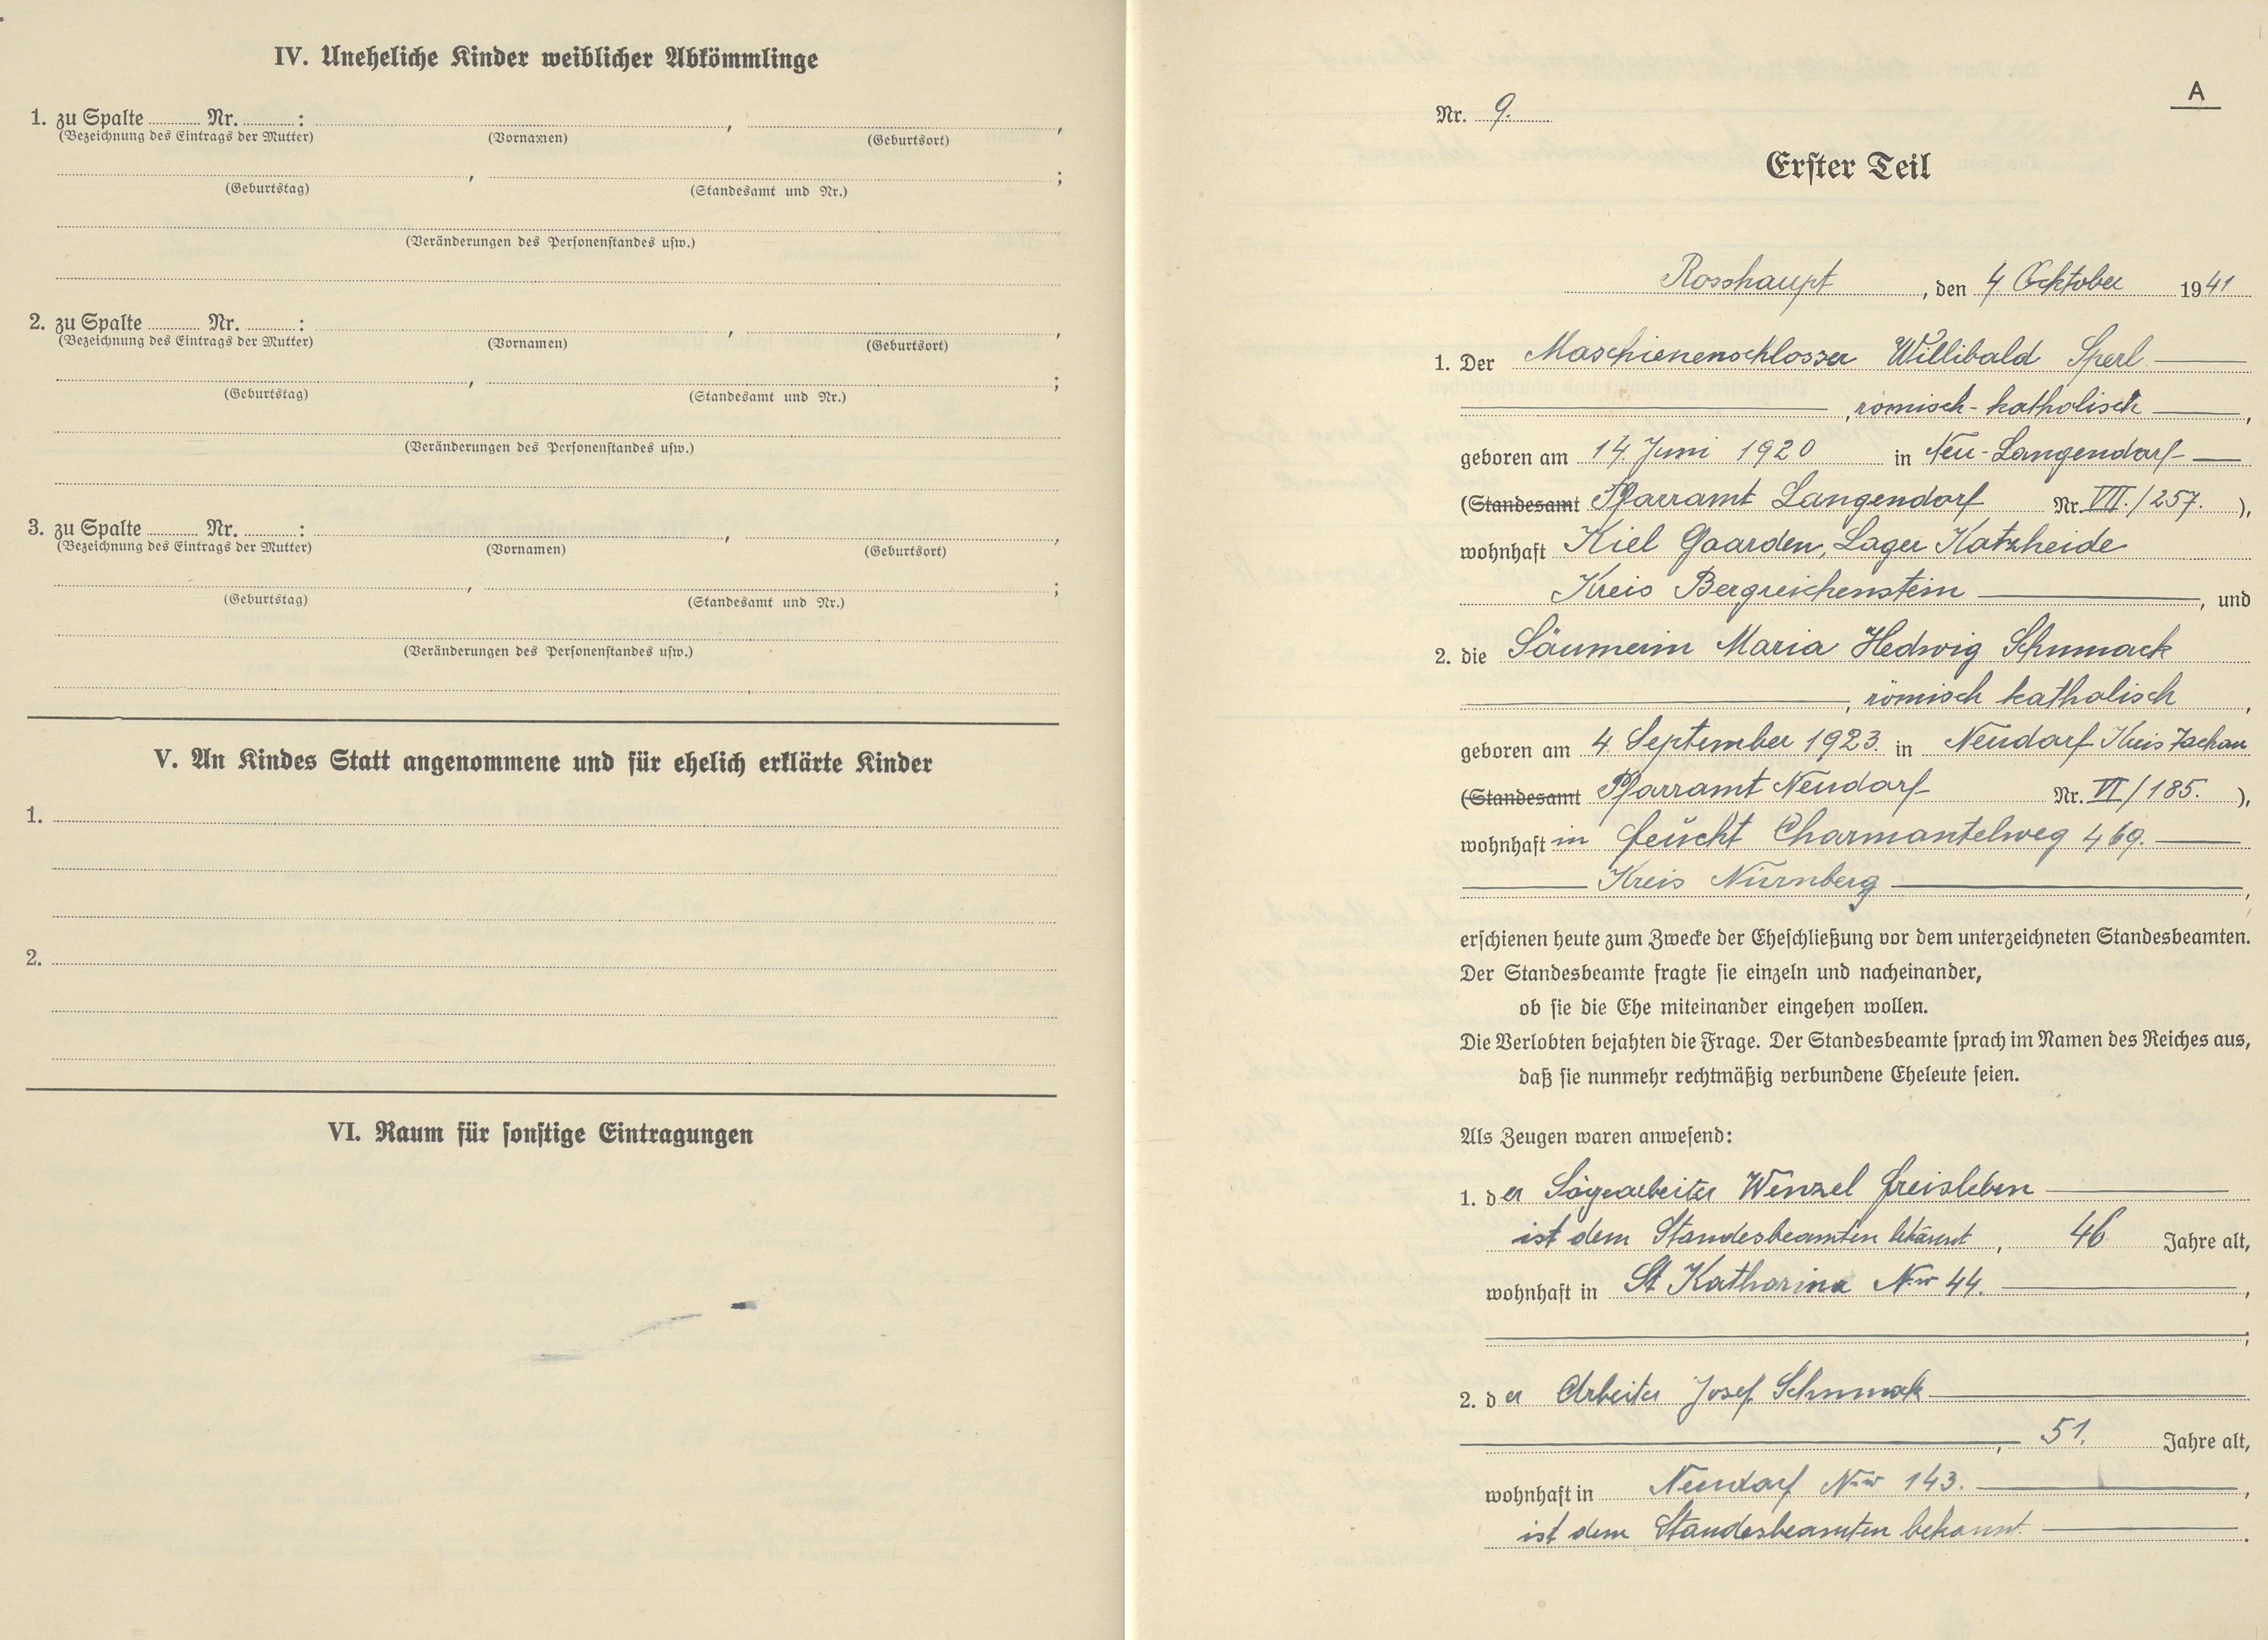 IV. Uneheliche Kinder weiblicher Abkömmlinge
1. zu Spalte ........ Nr. ........ : ........ , ........ ,
(Bezeichnung des Eintrags der Mutter) (Vornamen) (Geburtsort)
........ , ........ ;
(Geburtstag) (Standesamt und Nr.)
(Veränderungen des Personenstandes usw.)
2. zu Spalte ........ Nr. ........ : ........ , ........ ,
(Bezeichnung des Eintrags der Mutter) (Vornamen) (Geburtsort)
........ , ........ ;
(Geburtstag) (Standesamt und Nr.)
(Veränderungen des Personenstandes usw.)
3. zu Spalte ........ Nr. ........ : ........ , ........ ,
(Bezeichnung des Eintrags der Mutter) (Vornamen) (Geburtsort)
........ , ........ ;
(Geburtstag) (Standesamt und Nr.)
(Veränderungen des Personenstandes usw.)
V. An Kindes Statt angenommene und für ehelich erklärte Kinder
1.
2.
VI. Raum für sonstige Eintragungen
A
Nr. 9.
Erster Teil
Rosshaupt , den 4. Ocktober 1941
1. Der Maschienenschlosser Willibald Sperl
, römisch-katholisch ,
geboren am 14. Juni 1920 in Neu-Langendorf
(Standesamt Pfarramt Langendorf Nr. VII./257. ),
wohnhaft Kiel Gaarden, Lager Katzheide
Kreis Bergreichenstein , und
2. die Maria Hedwig Schmmack
, römisch katholisch ,
geboren am 4. September 1923. in Neudorf Kreis Tachau
(Standesamt Pfarramt Neudorf Nr. VI/185. ),
wohnhaft in Feucht Charmantelweg 469.
Kreis Nürnberg ,
erschienen heute zum Zwecke der Eheschließung vor dem unterzeichneten Standesbeamten.
Der Standesbeamte fragte sie einzeln und nacheinander,
ob sie die Ehe miteinander eingehen wollen.
Die Verlobten bejahten die Frage. Der Standesbeamte sprach im Namen des Reiches aus,
daß sie nunmehr rechtmäßig verbundene Eheleute seien.
Als Zeugen waren anwesend:
1. der Sägearbeiter Wenzel Freisleben
ist dem Standesbeamten bekannt , 46 Jahre alt,
wohnhaft in St Katharina Nro 44. ,
;
2. der Arbeiter Josef Schmmack
, 51. Jahre alt,
wohnhaft in Neudorf Nro 143. ,
ist dem Standesbeamten bekannt. .